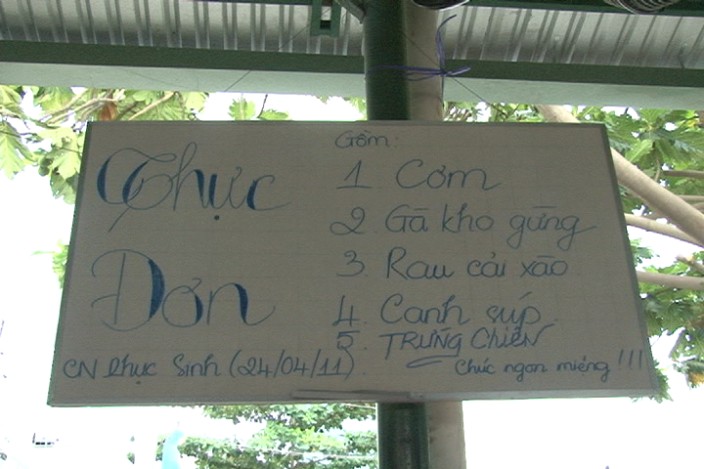 Thực
Đơn
CN Phục Sinh (24/04/11).
Gồm:
1 Cơm
2 Gà kho gừng
3. Rau cải xào
4. Canh súp.
5. TRỨNG CHIÊN
Chúc ngon miệng!!!